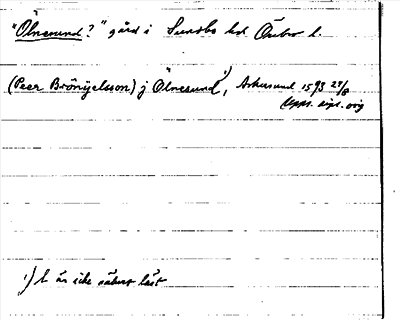 "Ölnesund?" gård i Sundbo hd Örebro l.
(Peer Brönijelsson) j Ölnesund¹), Askersund 1593 27/8
Upps. dipl. orig
¹) l är icke säkert läst